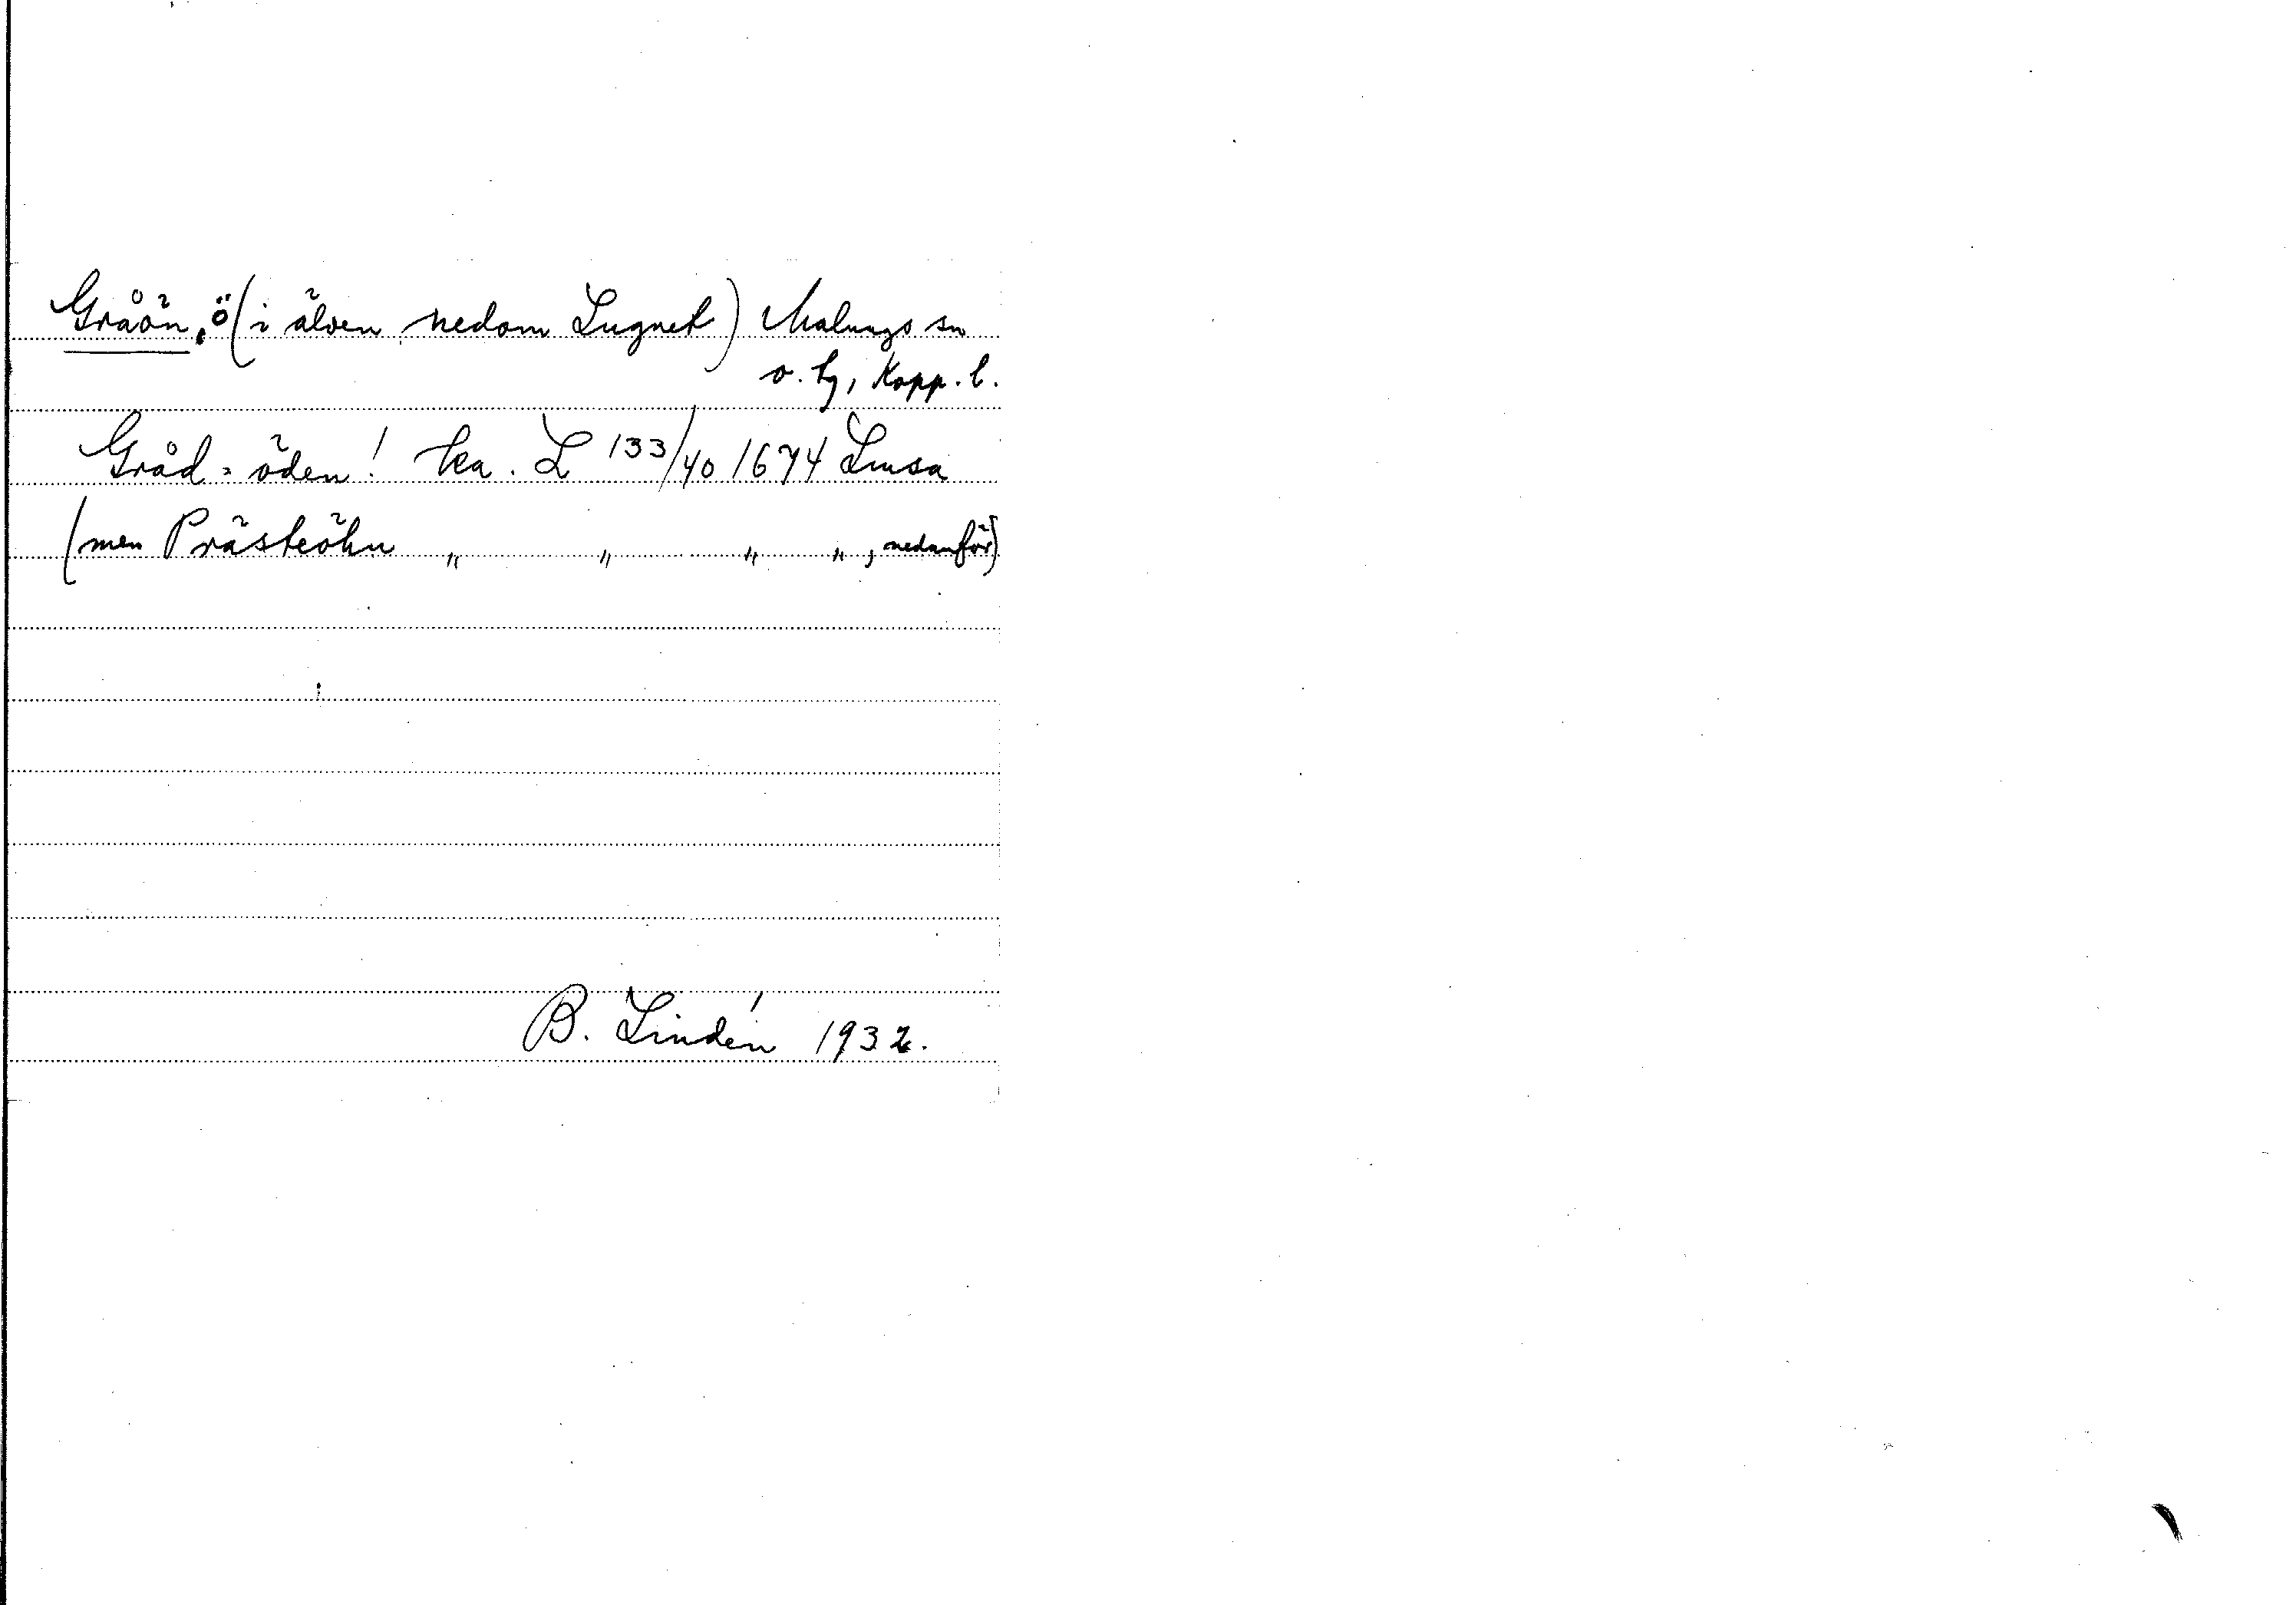 Gråön, ö (i älven nedom Lugnet) Malungs sn
o. tg, Kopp. l.
Gråd-öden! ka. L 133/40 1674 Lmsa
(men Prästeöhn " " " ", nedanför)
B. Lindén 1932.